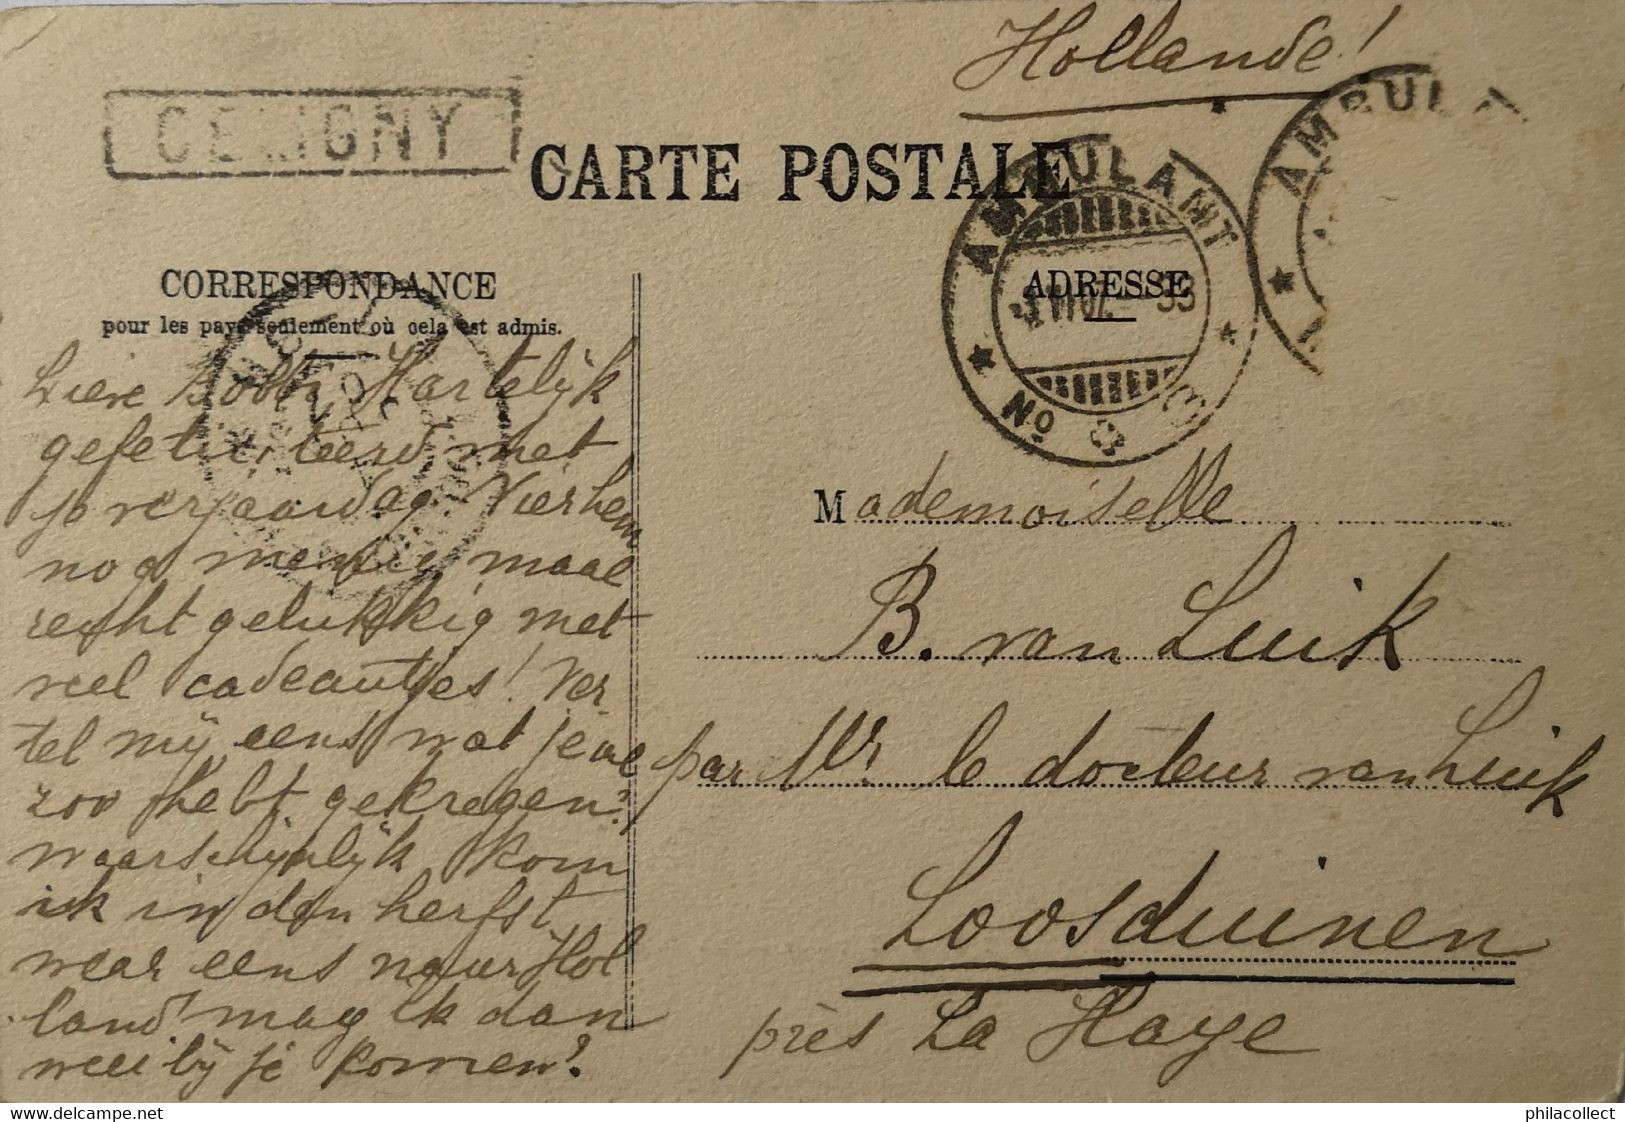 Hollande!
CELIGNY
CARTE POSTALE
AMBULANT
AMBULANT
No
CORRESPONDANCE
pour les pays seulement où cela est admis.
ADRESSE
Lieve Bobbi, Hartelijk
gefeliciteerd met
je verjaardag. Vier hem
nog menig maal
recht gelukkig met
veel cadeautjes! Ver
tel mij eens wat je al
zoo hebt gekregen?
waarschijnlijk kom
ik in den herfst
weer eens naar Hol
land! mag ik dan
weer bij je komen?
Mademoiselle
B. van Luik
par Mr. le docteur van Luik
Loosduinen
près La Haye
philacollect